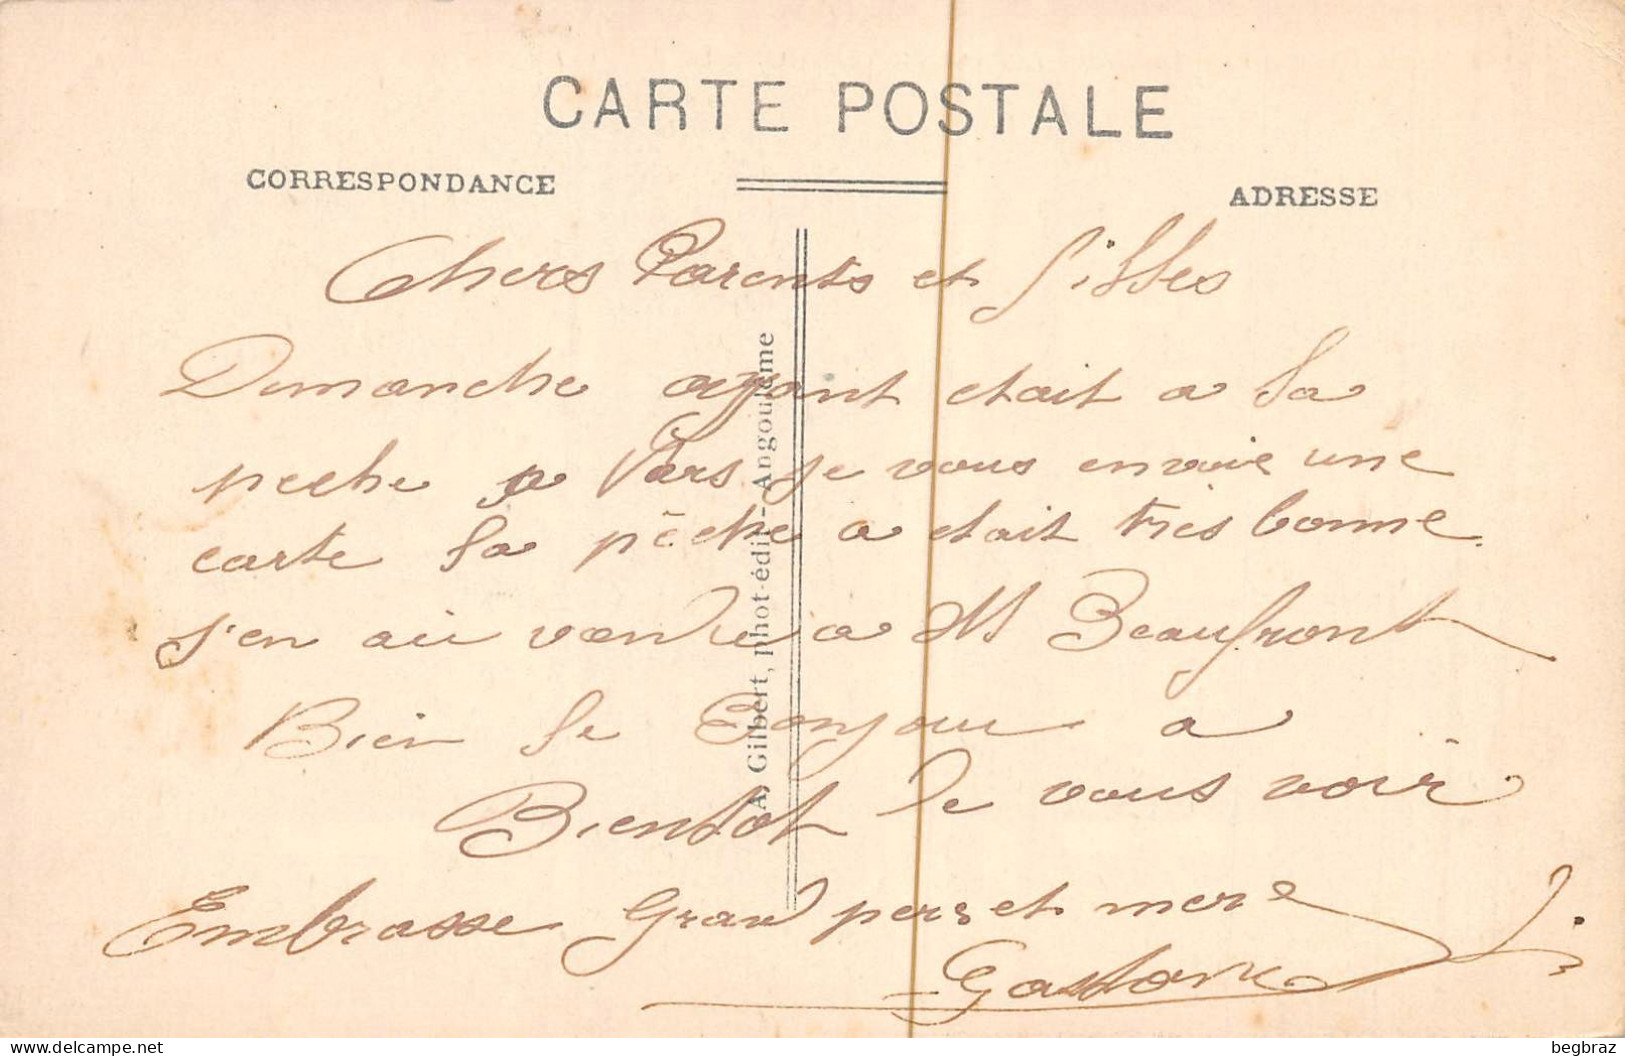 CARTE POSTALE
CORRESPONDANCE
ADRESSE
Chers Parents et filles
Dimanche ayant etait a la
peche a Vars je vous envoie une
carte la pêche a etait tres bonne
s'en ai vendre a M Beaufront
Bien le Bonjour a
Bientot de vous voir
Embrasse Grand pere et mere
Gastone
A. Gilbert, phot-édit - Angoulême
begbraz